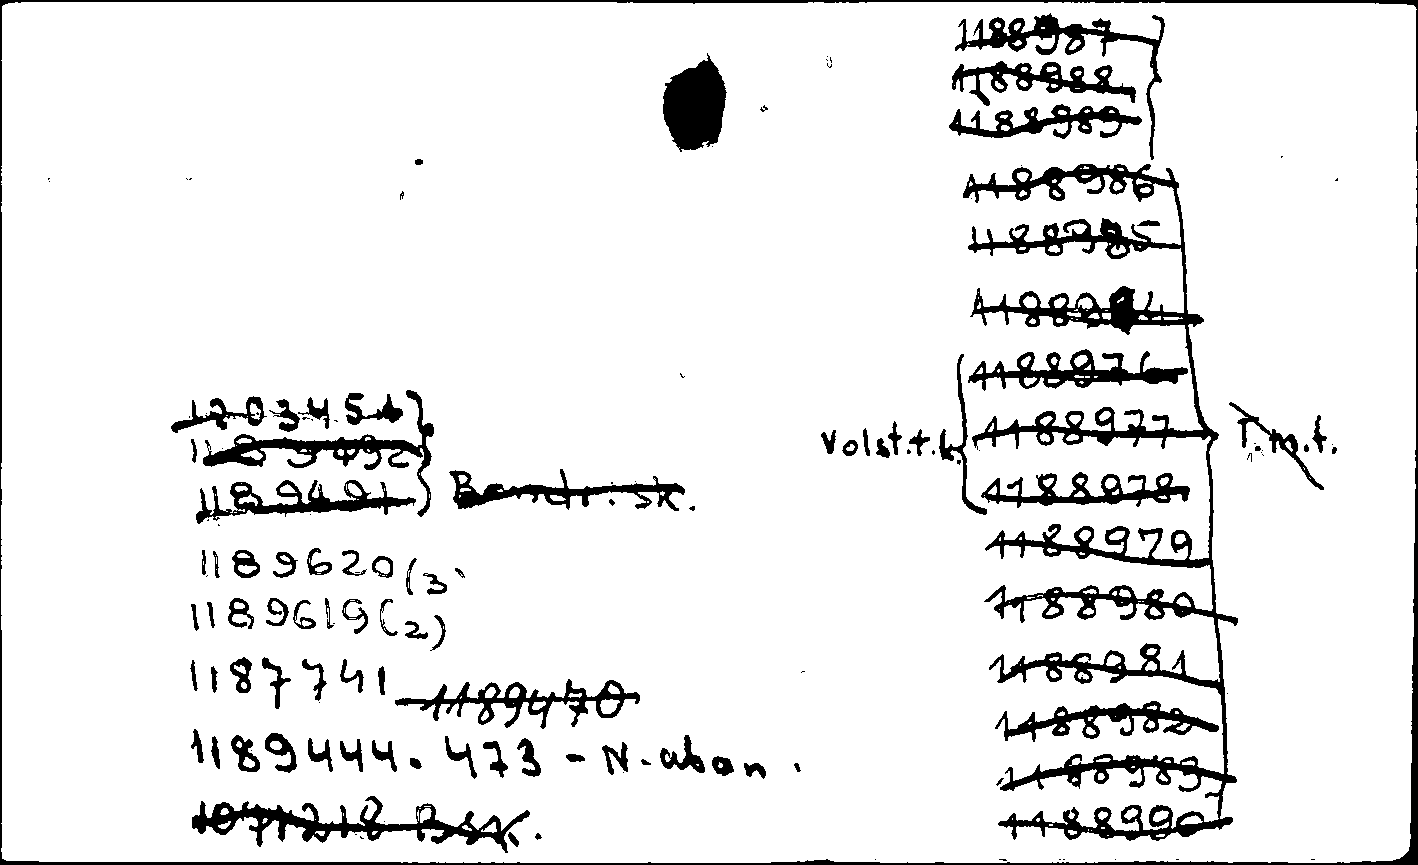 1188987
1188988
1188989
1188986
1188985
1188984
1188976
Volst.t.k. 1188977 T.m.t.
1188978
1188979
1188980
1188981
1188982
1188983
1188990
1203454
1189492
1189491 Bandr. sk.
1189620 (3)
1189619 (2)
1187741 1189470
1189444. 473 - N. aban.
1071218 Bsk.